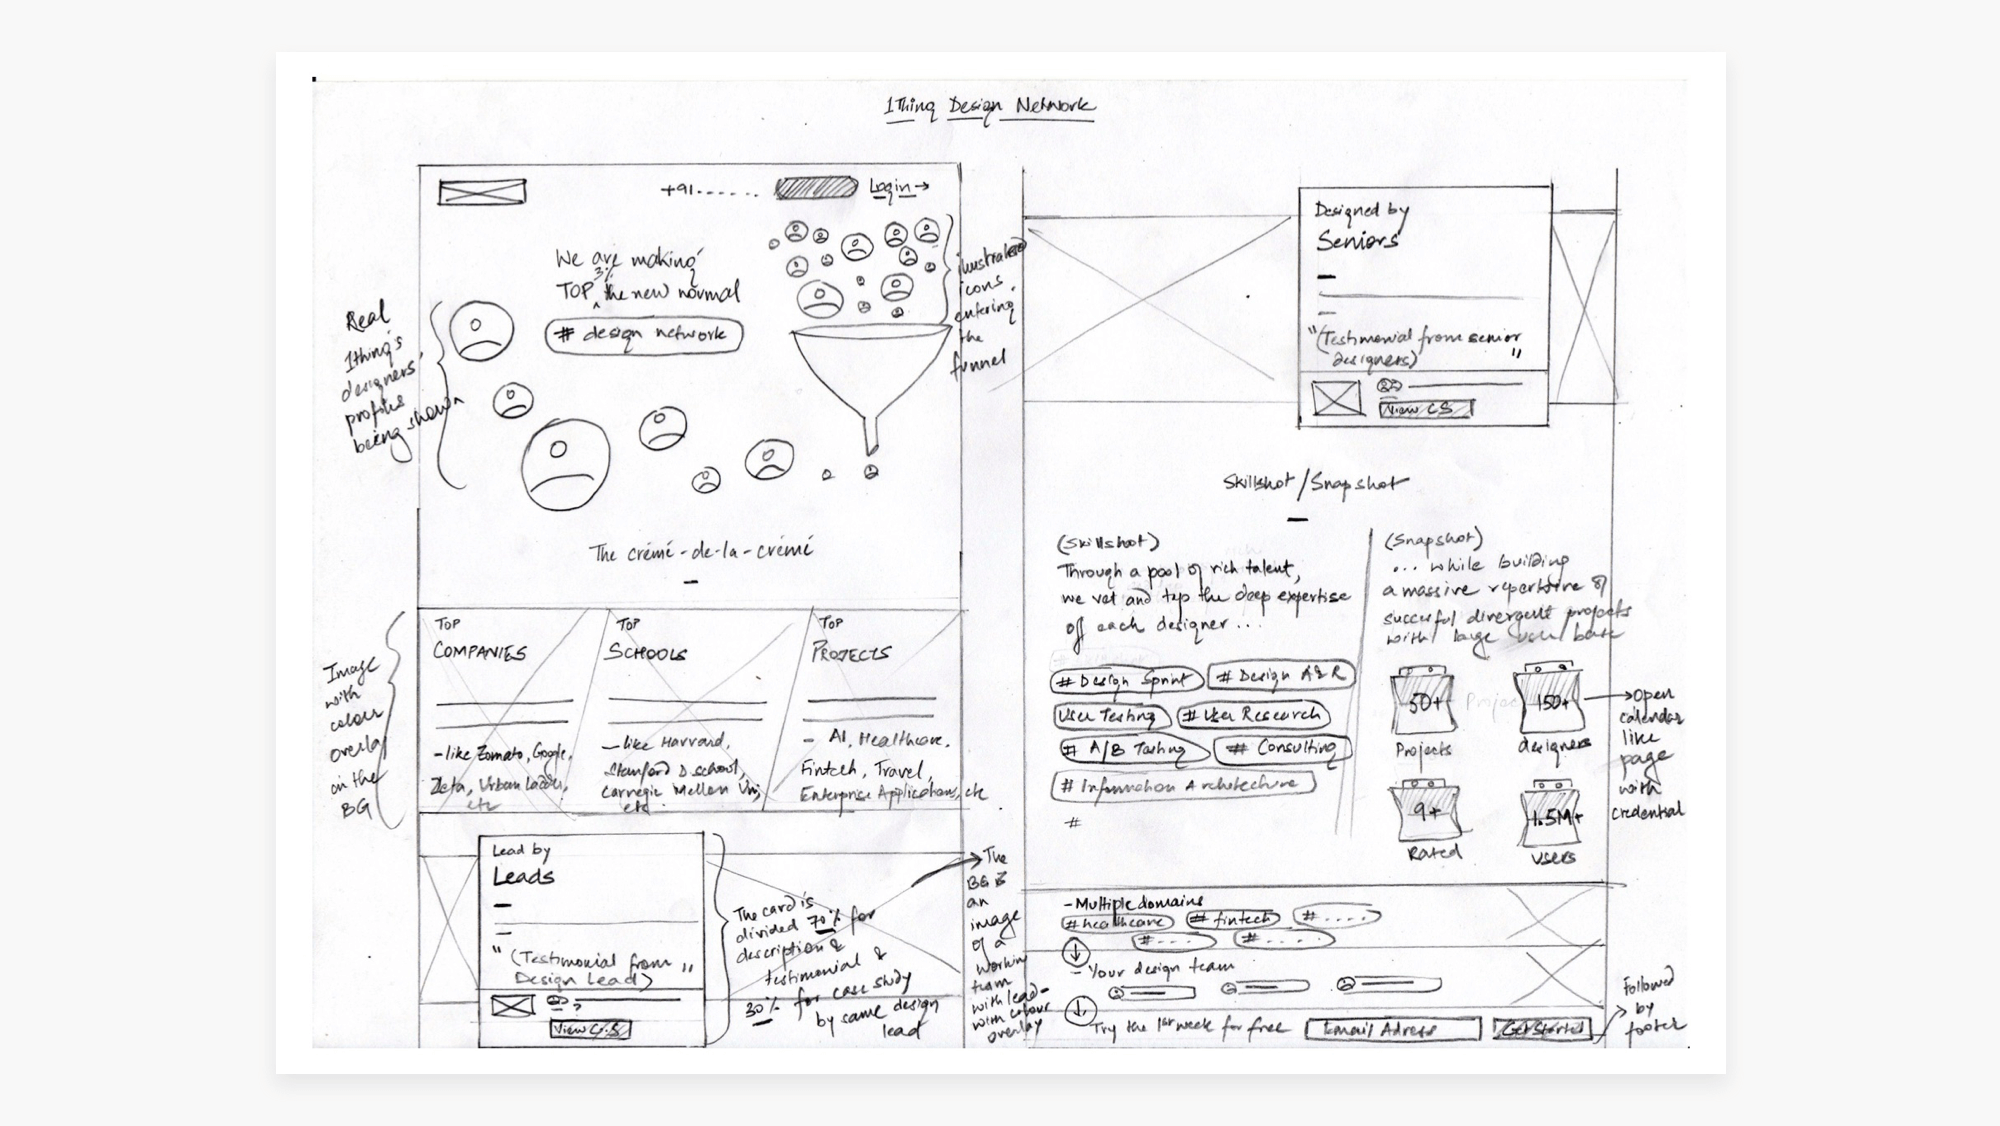 1Thing Design Network
+91...... Login →
We are making
3%
TOP ^ the new normal
# design network
Real
1thing's
designers'
profiles
being shown
illustrated
icons
entering
the
funnel
The crémé-de-la-crémé
Image
with
colour
overlay
in the
BG
TOP
COMPANIES
- like Zomato, Google,
Zeta, Urban Ladder,
etc
TOP
SCHOOLS
- like Harvard,
Stanford D school,
Carnegie Mellon Uni,
etc.
TOP
PROJECTS
- AI, Healthcare,
Fintech, Travel,
Enterprise Applications, etc
Lead by
Leads
"(Testimonial from
Design Lead)"
View C.S
The card is
divided 70% for
description &
testimonial &
30% for case study
by same design
lead
→ The
BG is
an
image
of a
working
team
with lead-
with colour
overlay
Designed by
Seniors
"(Testimonial from senior
designers)"
View CS
Skillshot/Snapshot
(Skillshot)
Through a pool of rich talent,
we vet and tap the deep expertise
of each designer...
# Design Sprint
# Design A&R
User Testing
# User Research
# A/B Testing
# Consulting
# Information Architechure
#
(Snapshot)
... while building
a massive repertoire of
succesful divergent projects
with large user base
50+
Projects
150+
designers
9+
Rated
1.5M+
Users
→ Open
calendar
like
page
with
credential
- Multiple domains
# healthcare
# fintech
#....
#....
#....
- Your design team
Try the 1st week for free
Email Adress
Get Started
Followed
by
footer